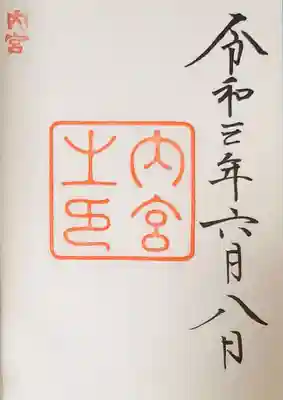 令和三年六月八日
内宮
之印
内宮